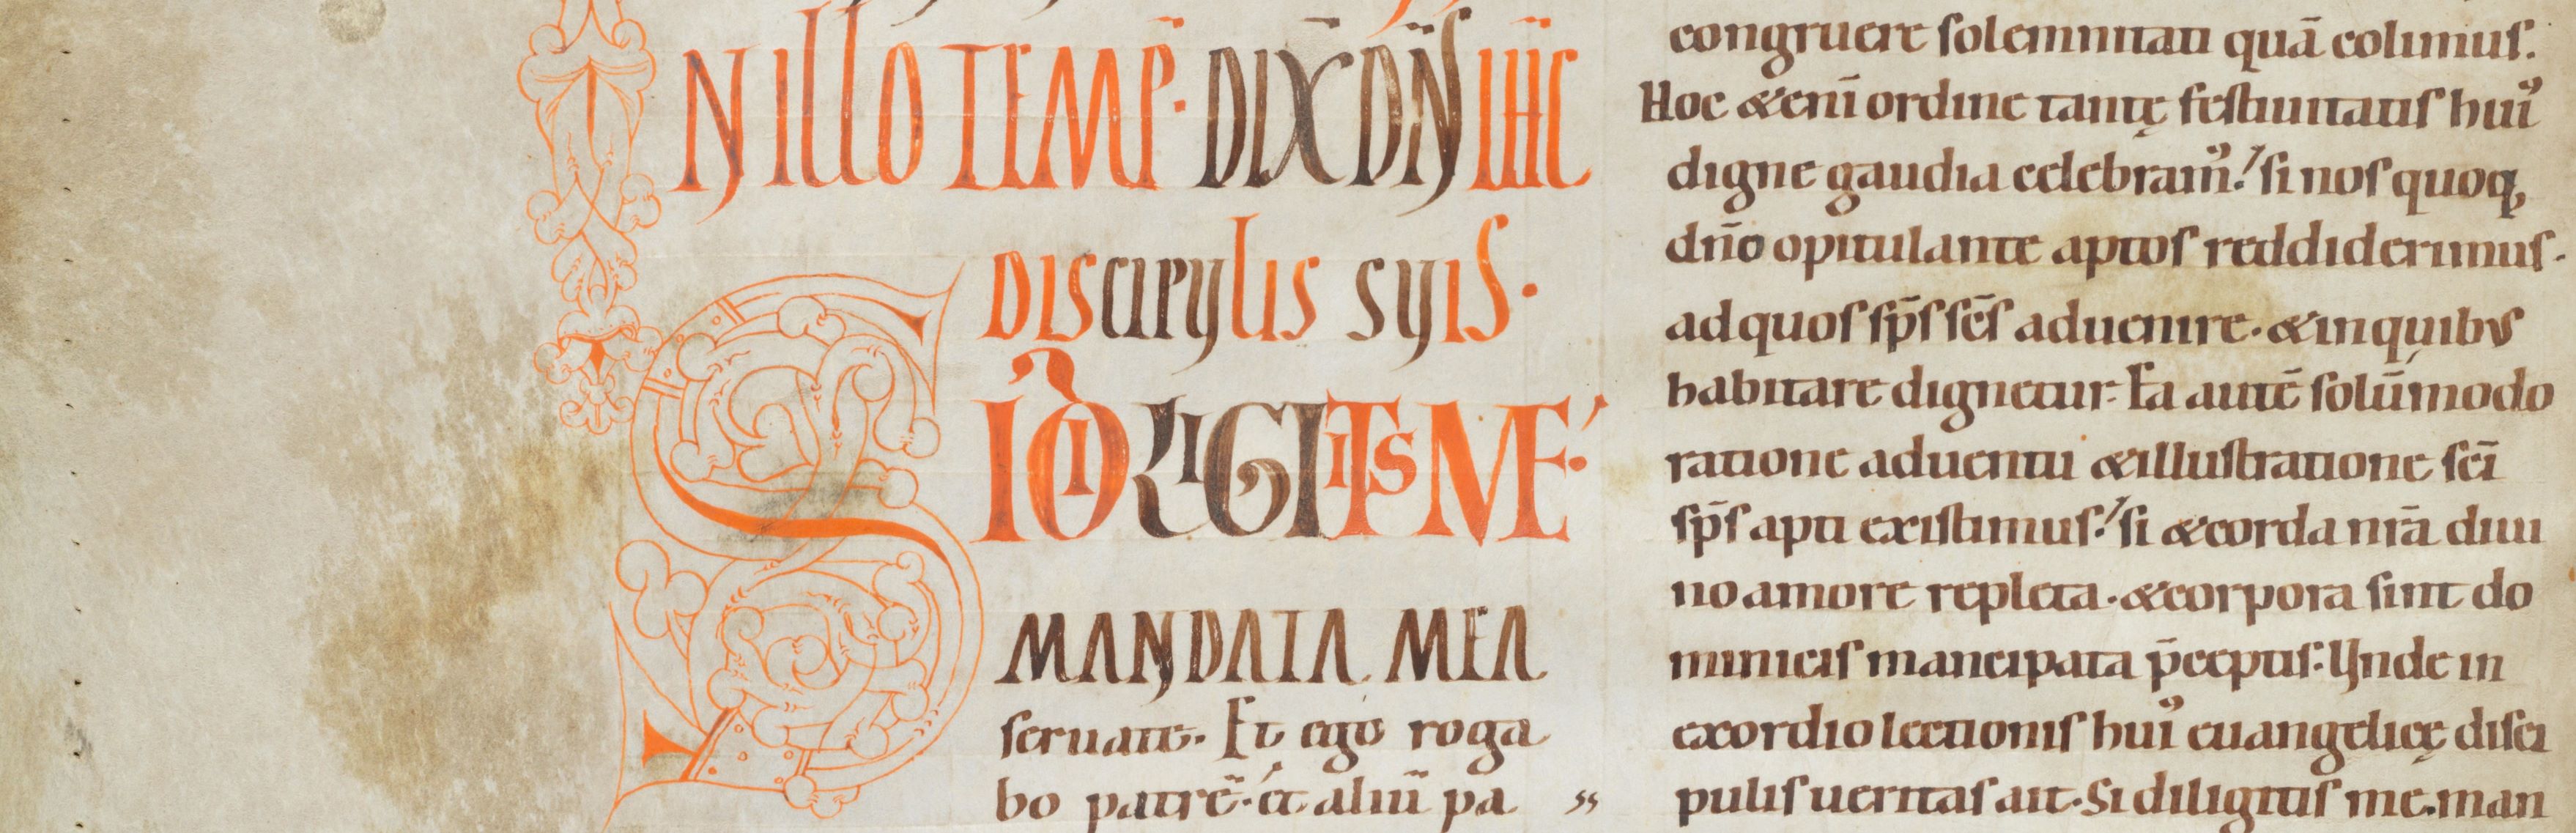 IN ILLO TEMP̄· DIX̄ DN̄S IH̄C
DISCIPULIS SUIS·
SI DILIGITIS ME·
MANDATA MEA
seruate· Et ego roga
bo patrē· et aliū pa
congruere solemnitati quā colimus·
Hoc &enī ordine tantę festiuitatis hui᾽
digne gaudia celebram᾽ si nos quoq;
dn̄o opitulante aptos reddiderimus·
ad quos sp̄s sc̄s aduenire· & in quibus
habitare dignetur· Ea autē solūmodo
ratione aduentui & illustratione sc̄i
sp̄s apti existimus si & corda nr̄a diui
no amore repleta· & corpora sint do
minicis mancipata p̄ceptis· Unde in
exordio lectionis hui᾽ euangelicę disci
pulis ueritas ait· Si diligitis me· man